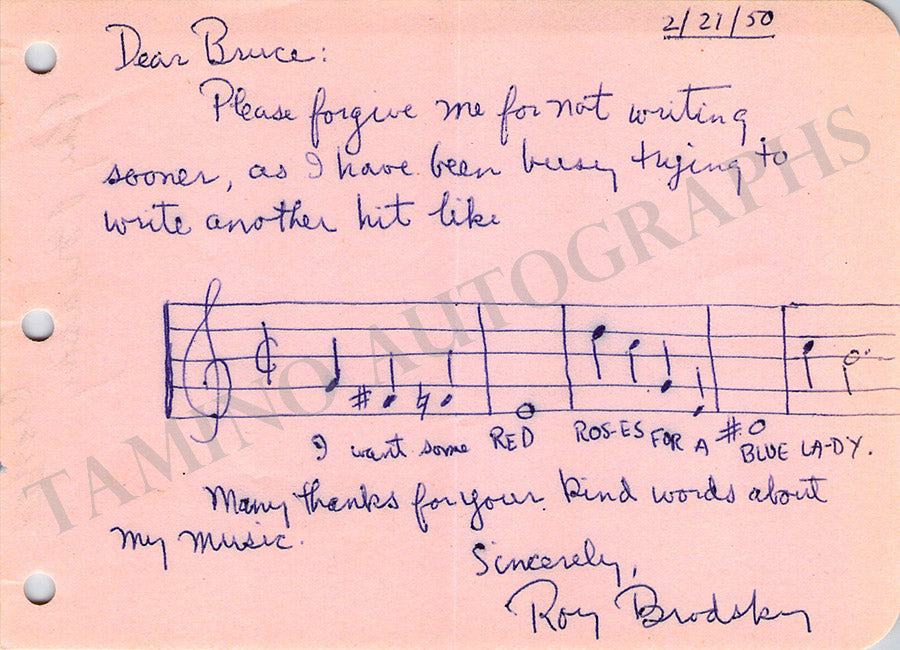 2/21/50
Dear Bruce:
Please forgive me for not writing
sooner, as I have been busy trying to
write another hit like
I want some RED ROS-ES FOR A BLUE LA-DY.
Many thanks for your kind words about
my music.
Sincerely,
Roy Brodsky
TAMINO AUTOGRAPHS